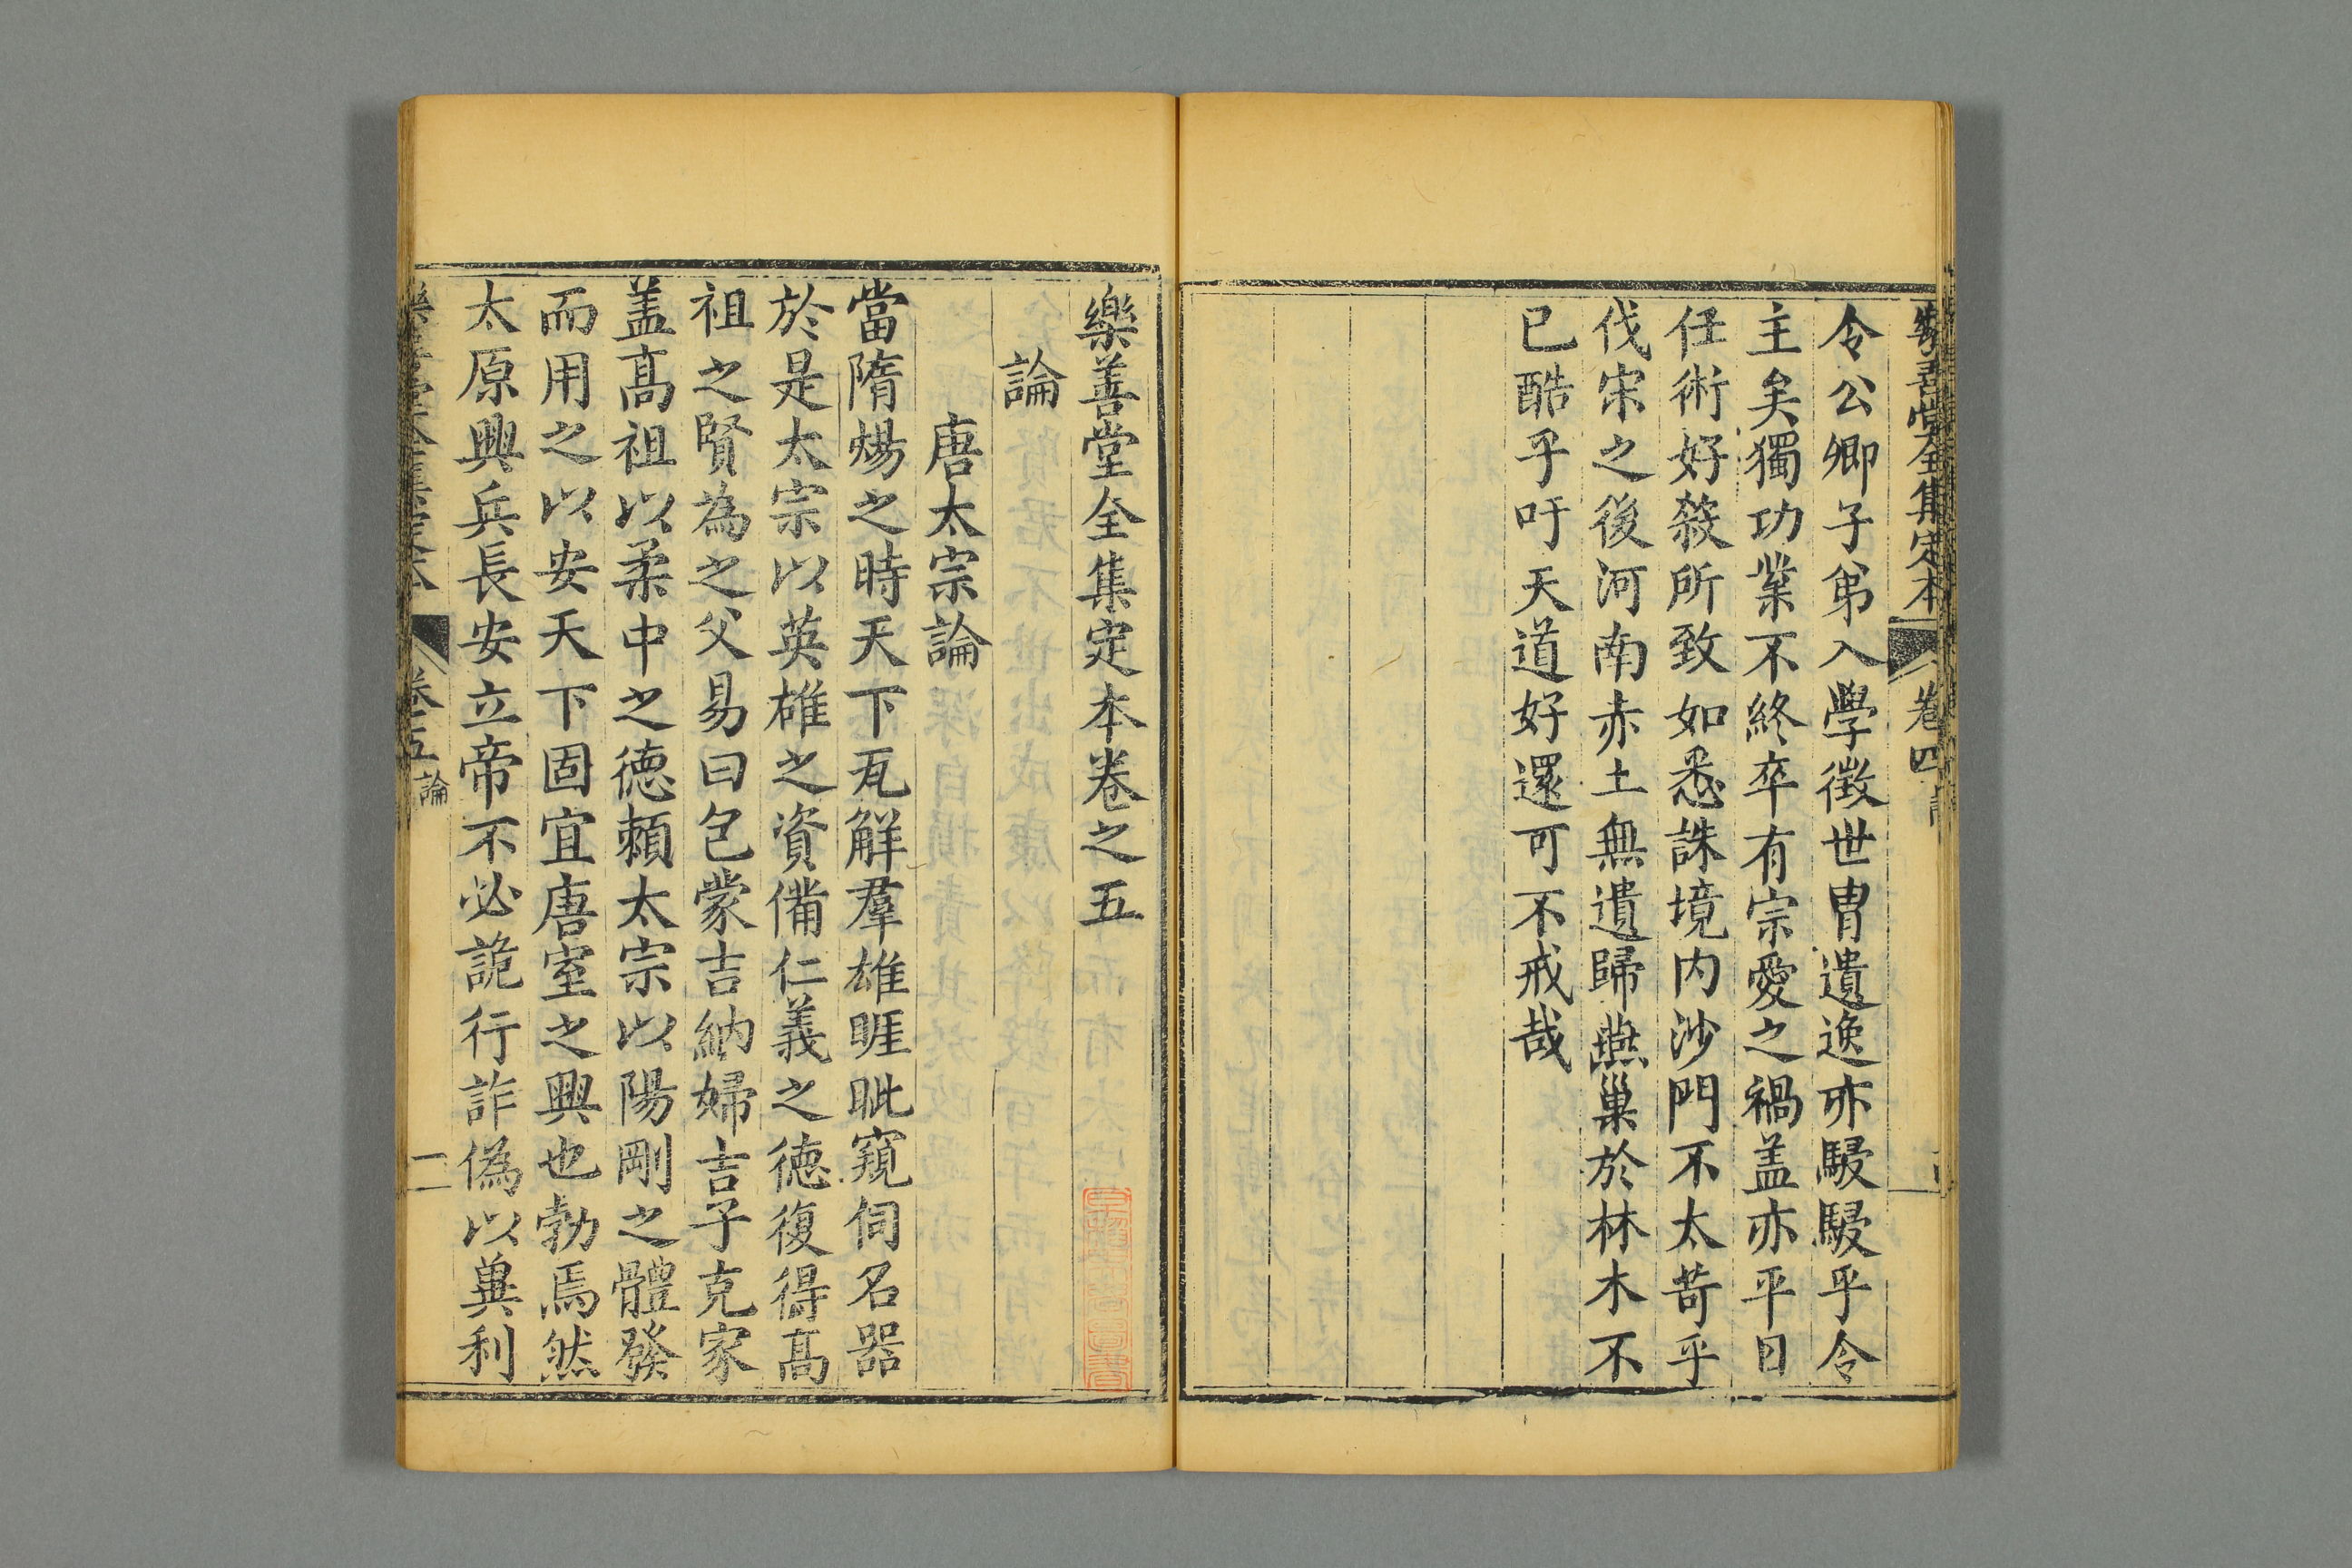 樂善堂全集定本 卷四
令公卿子弟入學徵世胄遺逸亦駸駸乎令
主矣獨功業不終卒有宗愛之禍盖亦平日
任術好殺所致如悉誅境內沙門不太苛乎
伐宋之後河南赤土無遺歸燕巢於林木不
已酷乎吁天道好還可不戒哉
樂善堂全集定本卷之五
論
唐太宗論
當隋煬之時天下瓦解羣雄睚眦窺伺名器
於是太宗以英雄之資備仁義之德復得髙
祖之賢為之父易曰包蒙吉納婦吉子克家
盖髙祖以柔中之德頼太宗以陽剛之體發
而用之以安天下固宜唐室之興也勃焉然
太原興兵長安立帝不必詭行詐偽以兾利
樂善堂全集定本 卷五 論 一